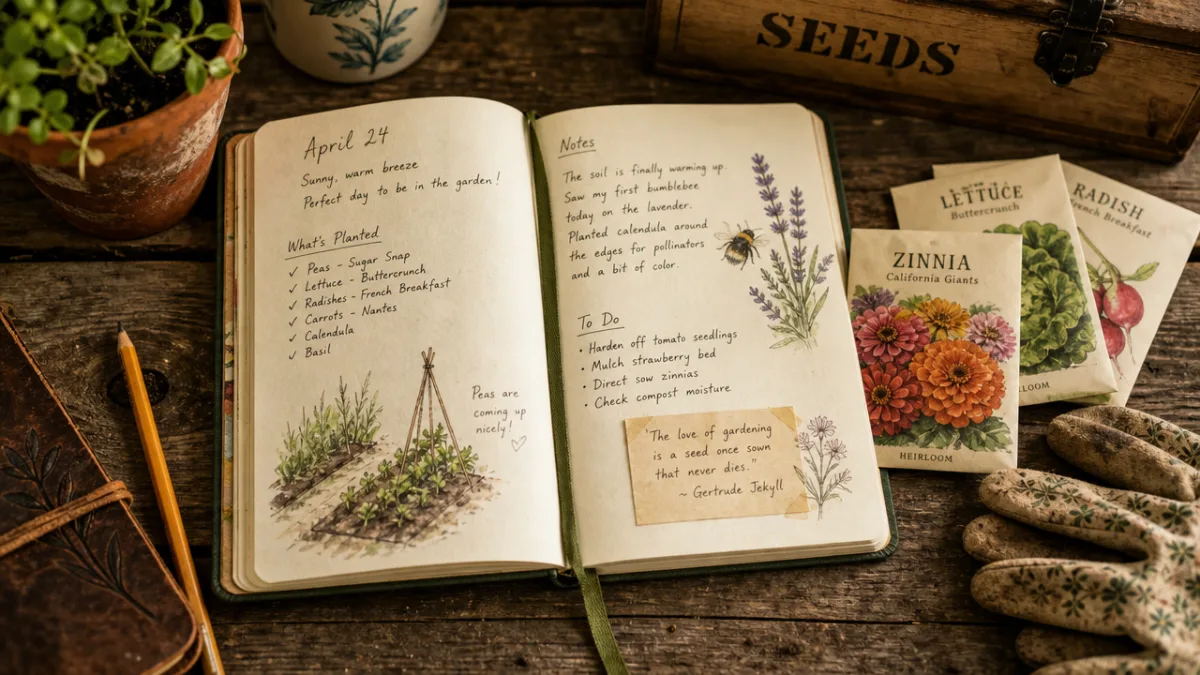 SEEDS
April 24
Sunny, warm breeze
Perfect day to be in the garden!
What's Planted
✓ Peas - Sugar Snap
✓ Lettuce - Buttercrunch
✓ Radishes - French Breakfast
✓ Carrots - Nantes
✓ Calendula
✓ Basil
Peas are
coming up
nicely!
Notes
The soil is finally warming up.
Saw my first bumblebee
today on the lavender.
Planted calendula around
the edges for pollinators
and a bit of color.
To Do
• Harden off tomato seedlings
• Mulch strawberry bed
• Direct sow zinnias
• Check compost moisture
"The love of gardening
is a seed once sown
that never dies."
~ Gertrude Jekyll
LETTUCE
Buttercrunch
RADISH
French Breakfast
ZINNIA
California Giants
HEIRLOOM